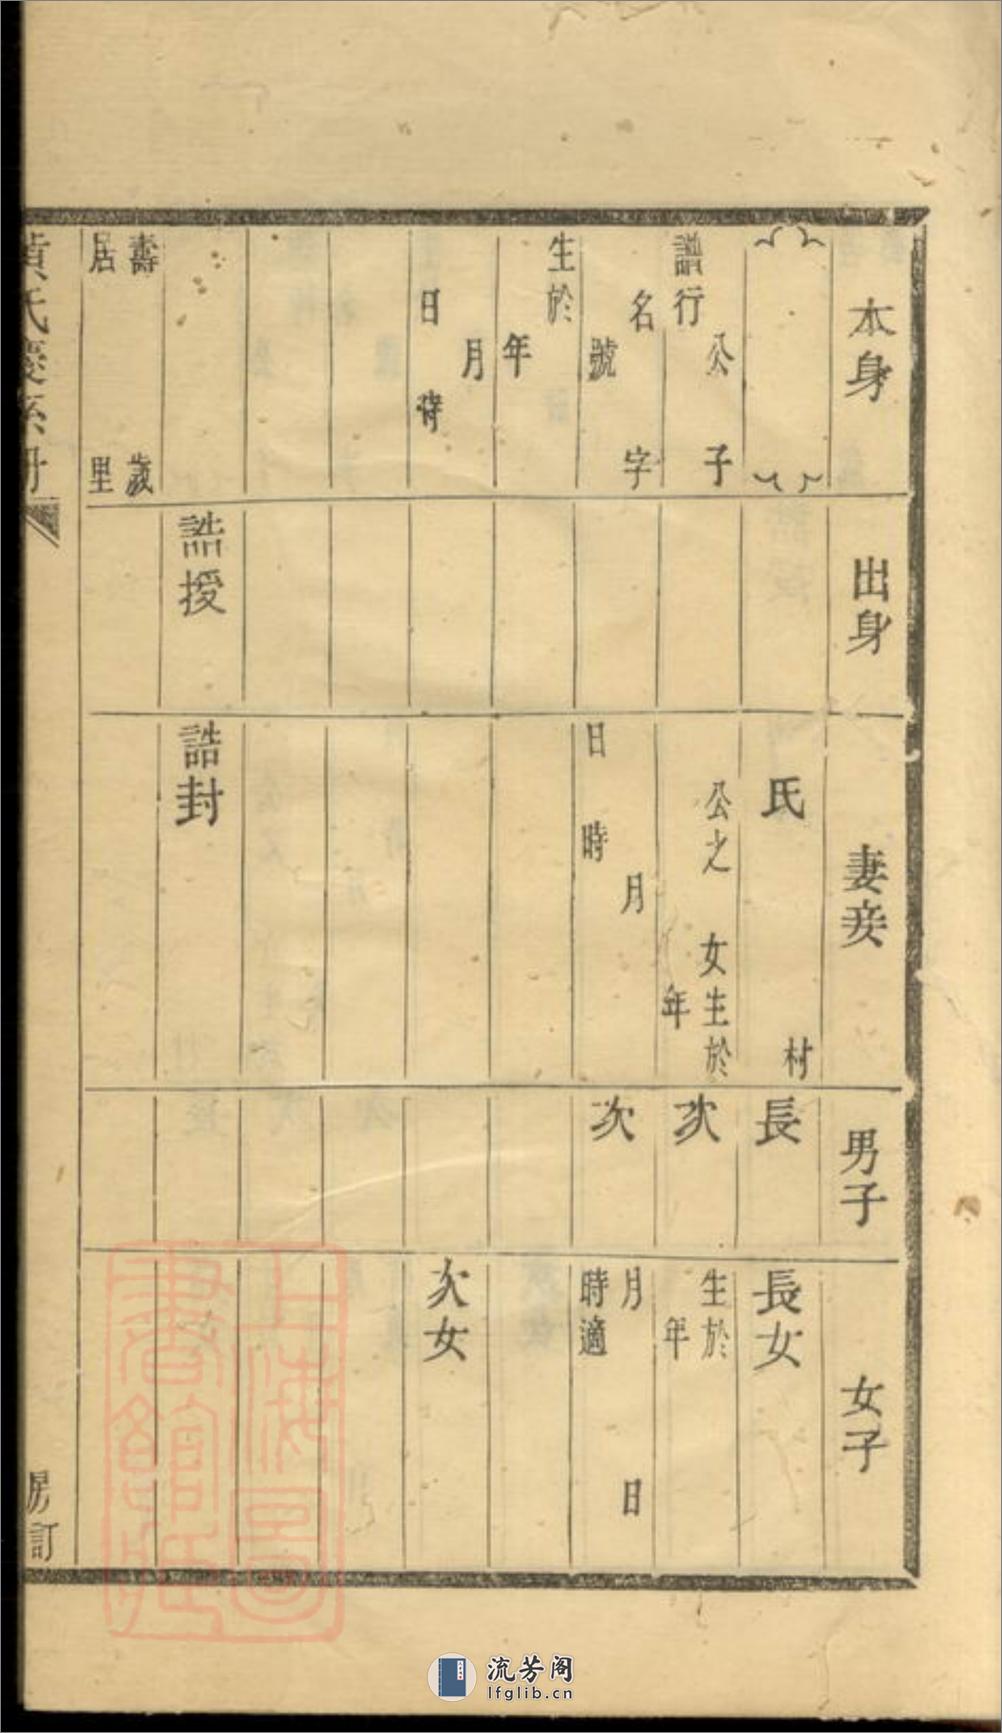 本身
出身
妻妾
男子
女子
公子
譜行
名 字
號
生於
年
月
日 時
壽 歲
居 里
誥授
氏 村
公之 女生於
年
月
日 時
誥封
長
次
次
長女
生於
年
月 日
時適
次女
黃氏慶系冊
房訂
上海圖
書館藏
流芳阁
lfglib.cn